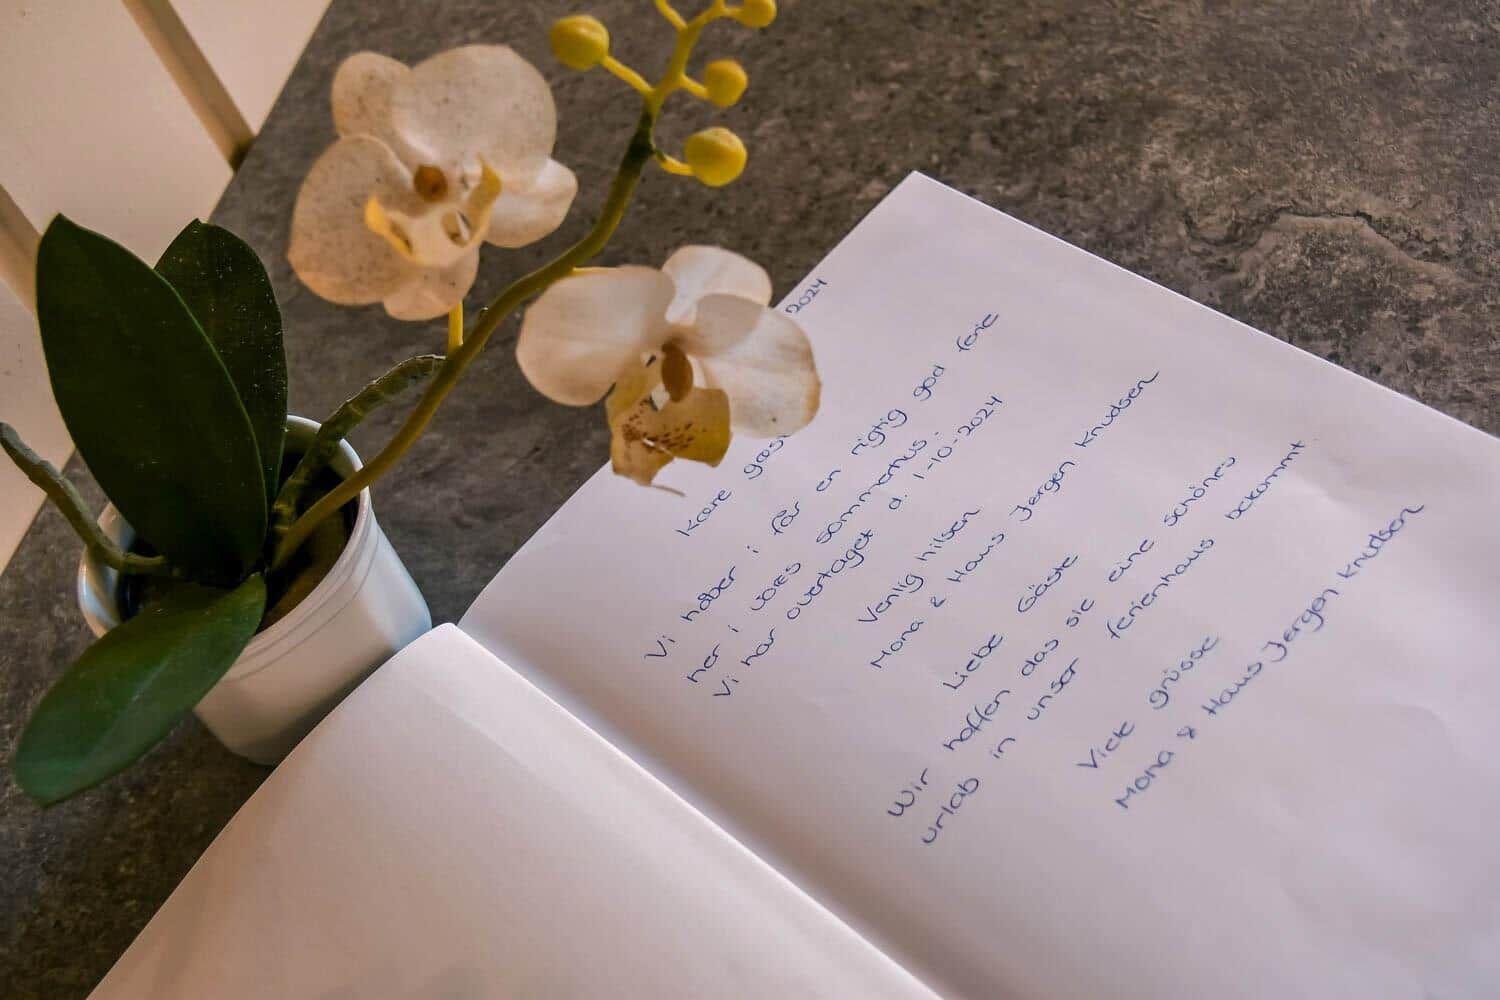 2024
Kære gæst
Vi håber i får en rigtig god ferie
her i vores sommerhus.
Vi har overtaget d. 1-10-2024
Venlig hilsen
Mona & Hans Jørgen Knudsen
Liebe Gäste
Wir hoffen das sie eine schönes
urlab in unser ferienhaus bekommt
Viele grüsse
Mona & Hans Jørgen Knudsen